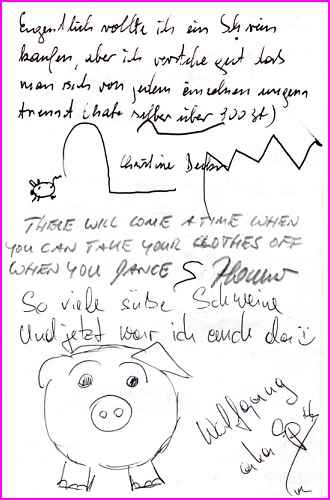 Eigentlich wollte ich ein Schwein
kaufen, aber ich verstehe gut das
man sich von jedem einzelnen ungern
trennt (habe selber über 300 St)
Christine
THERE WILL COME A TIME WHEN
YOU CAN TAKE YOUR CLOTHES OFF
WHEN YOU DANCE
So viele süße Schweine
Und jetzt war ich auch da
Wolfgang
aka